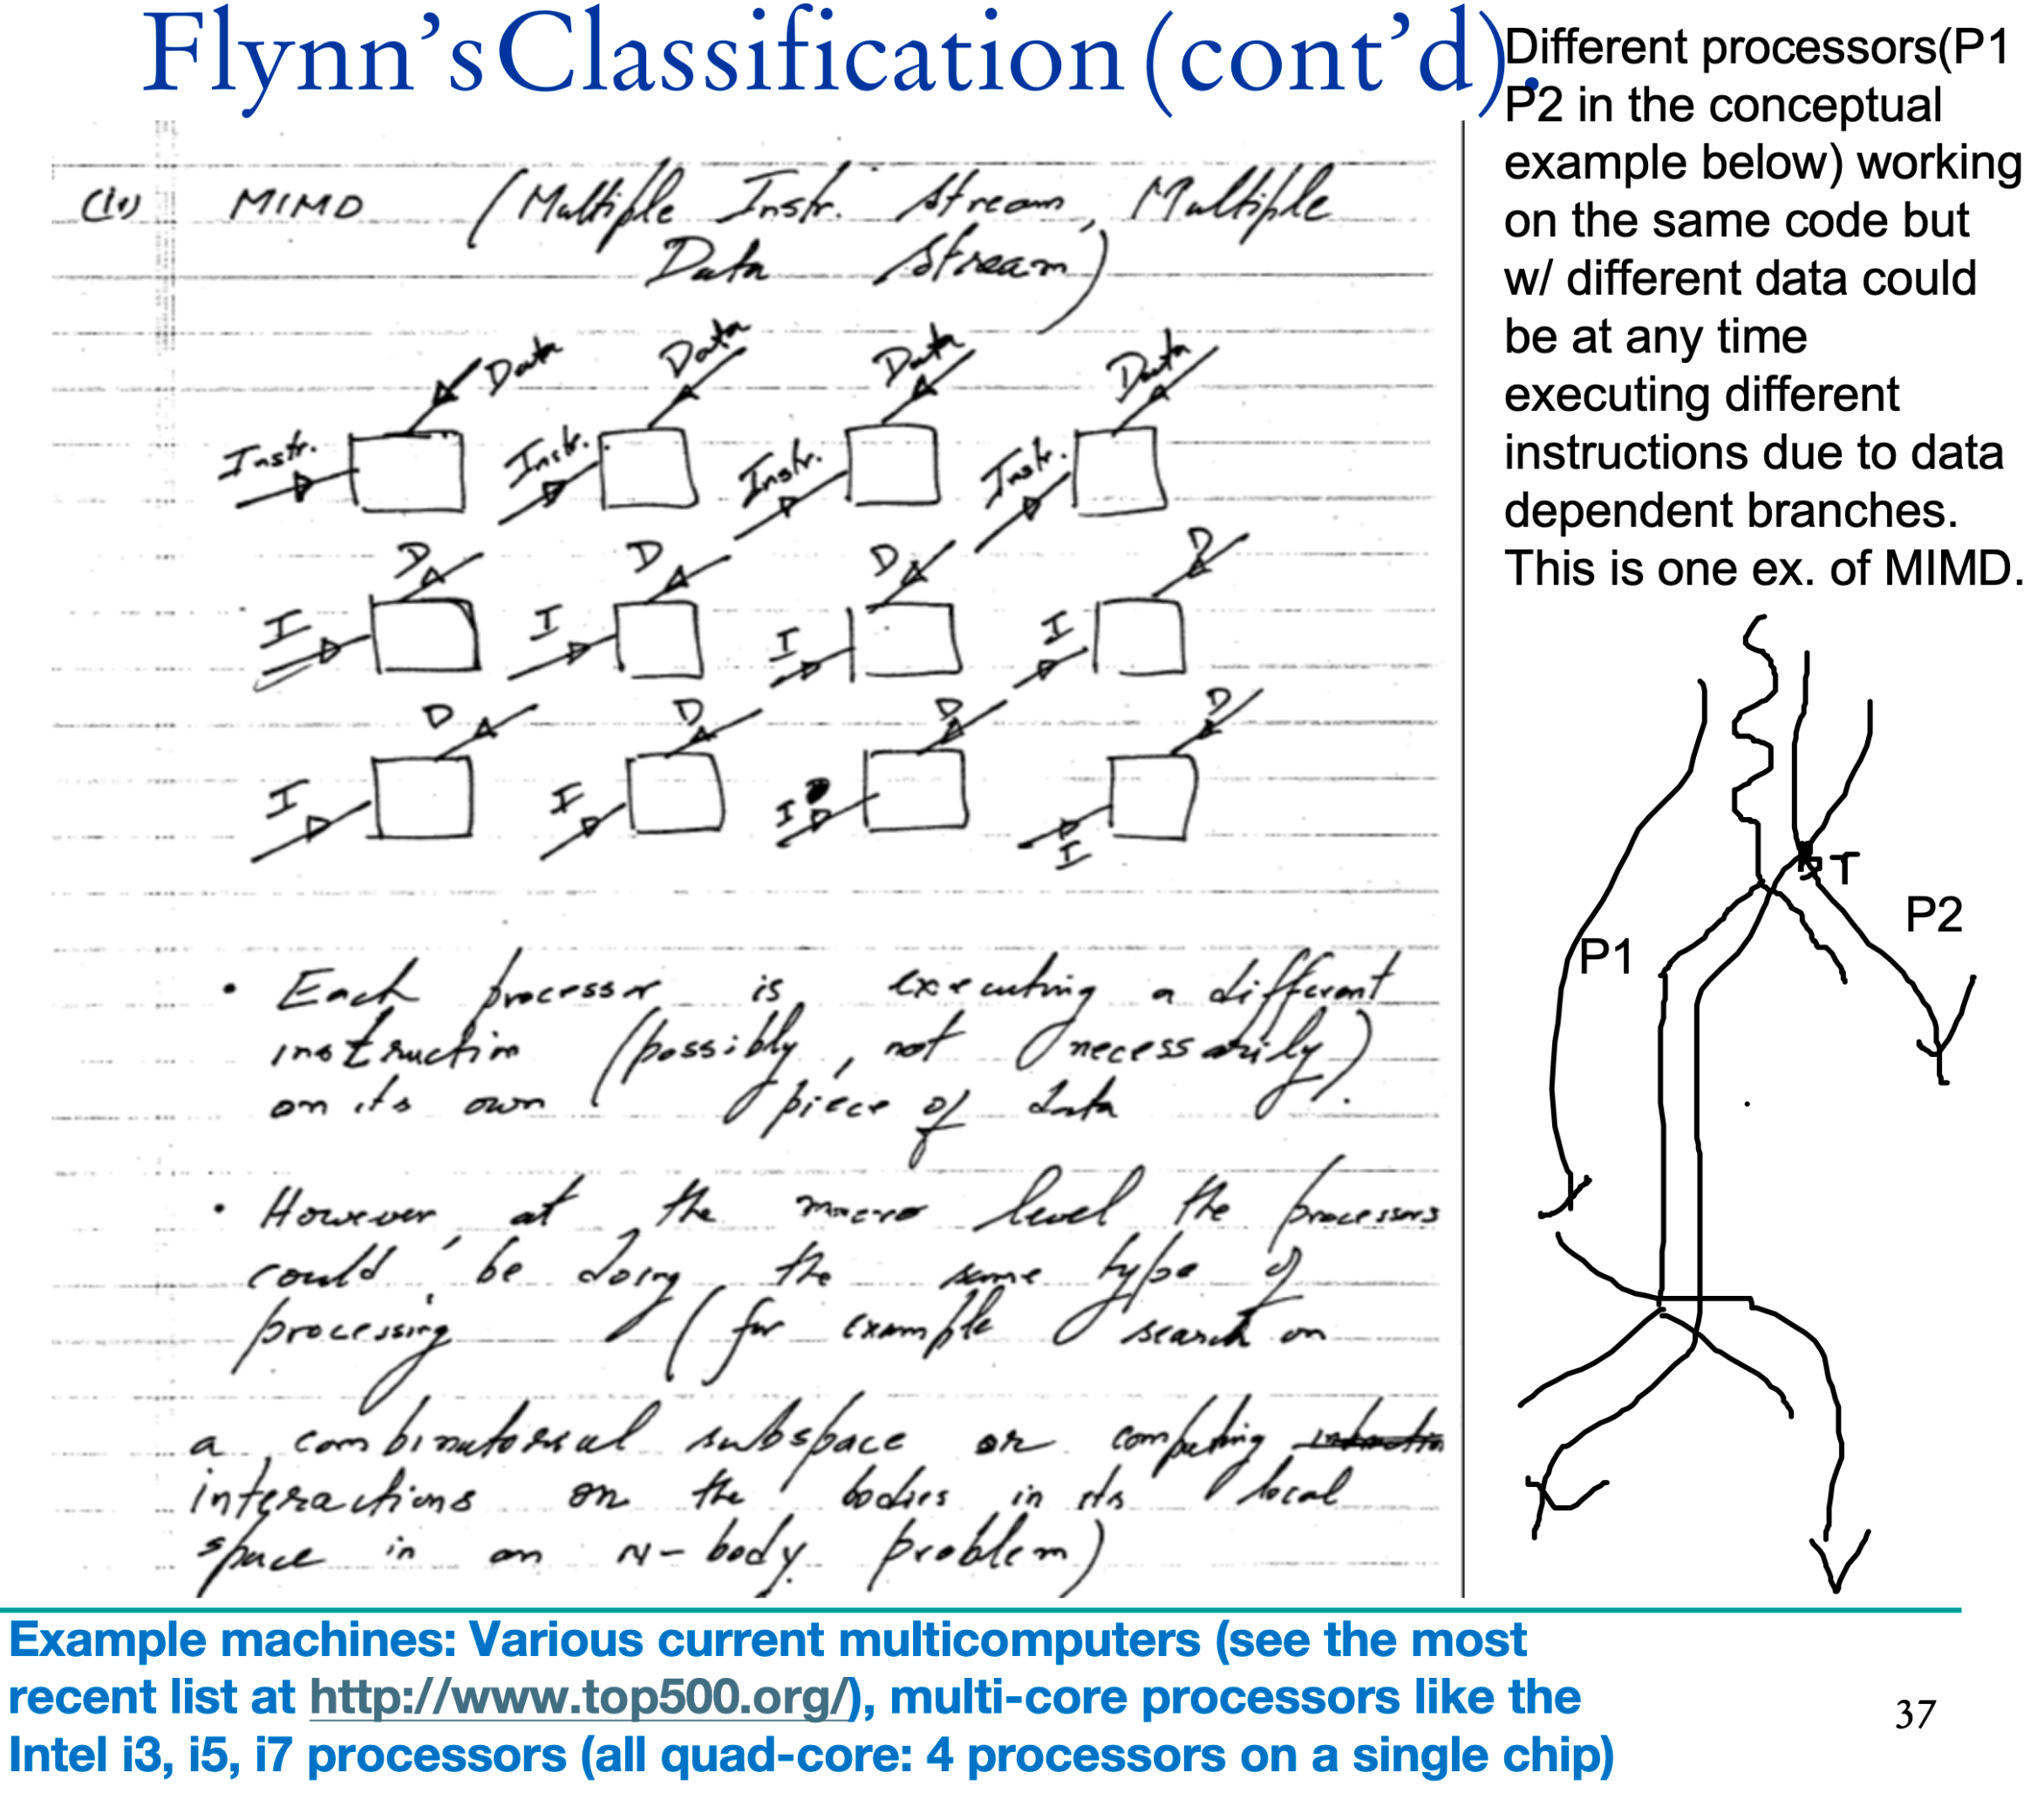 Flynn's Classification (cont'd).
(iv) MIMD (Multiple Instr. Stream, Multiple
Data Stream)
Data Data Data Data
Instr. Instr. Instr. Instr.
D D D D
I I I I
D D D D
I I I I
• Each processor is executing a different
instruction (possibly, not necessarily)
on its own piece of data.
• However, at the macro level the processors
could be doing the same type of
processing (for example search on
a combinatorial subspace or computing
interactions on the bodies in its local
space in an N-body problem)
Different processors(P1
P2 in the conceptual
example below) working
on the same code but
w/ different data could
be at any time
executing different
instructions due to data
dependent branches.
This is one ex. of MIMD.
T
P2
P1
Example machines: Various current multicomputers (see the most
recent list at http://www.top500.org/), multi-core processors like the
Intel i3, i5, i7 processors (all quad-core: 4 processors on a single chip)
37